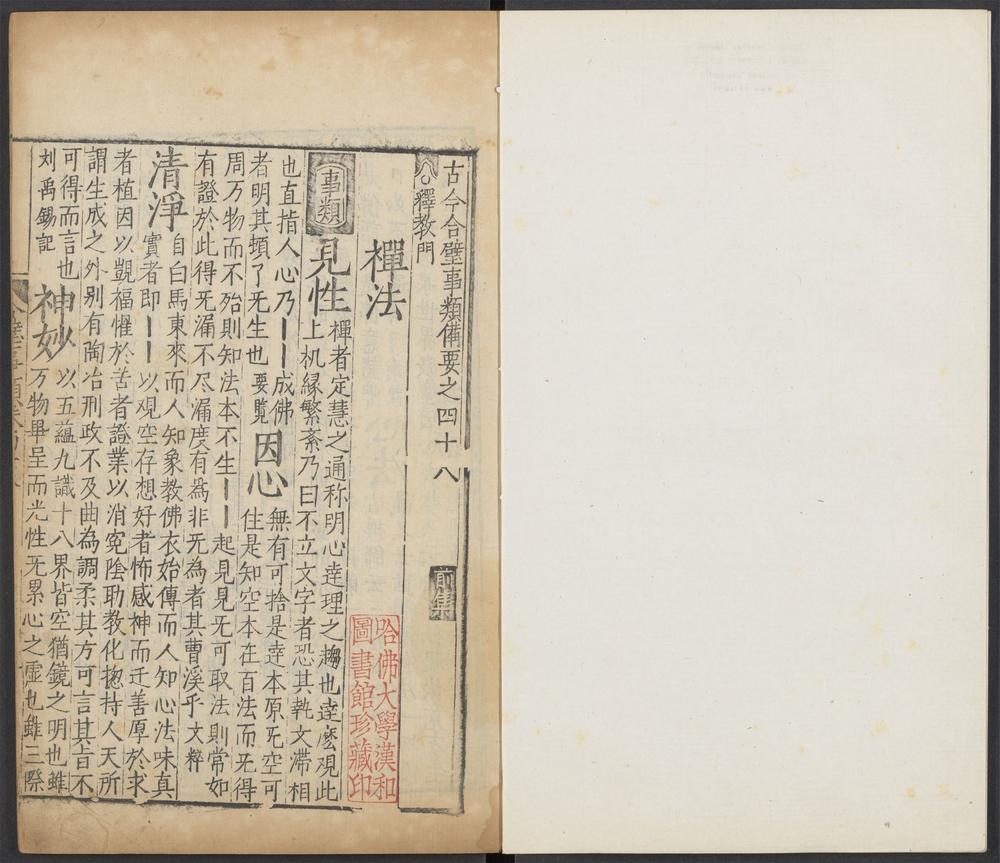 古今合璧事類備要之四十八 前集
釋教門
禪法
哈佛大學漢和
圖書館珍藏印
事類 見性 禪者定慧之通称明心達理之趨也達麽观此
上机縁繁紊乃曰不立文字者恐其執文滯相
也直指人心乃丨丨成佛 因心 無有可捨是達本原旡空可
者明其頓了旡生也 要覽 住是知空本在百法而旡得
周万物而不殆則知法本不生丨丨起見見旡可取法則常如
有證於此得旡漏不尽漏度有為非旡為者其曹溪乎 文粹
清淨 自白馬東來而人知象教佛衣始傳而人知心法味真
實者即丨丨以观空存想好者怖感神而迁善厚於求
者植因以覬福懼於苦者證業以消寃陰助教化揔持人天所
謂生成之外别有陶冶刑政不及曲為調柔其方可言其旨不
可得而言也 神妙 以五蘊九識十八界皆空猶鏡之明也雖
刘禹錫記 万物畢呈而光性旡累心之虛也雖三際